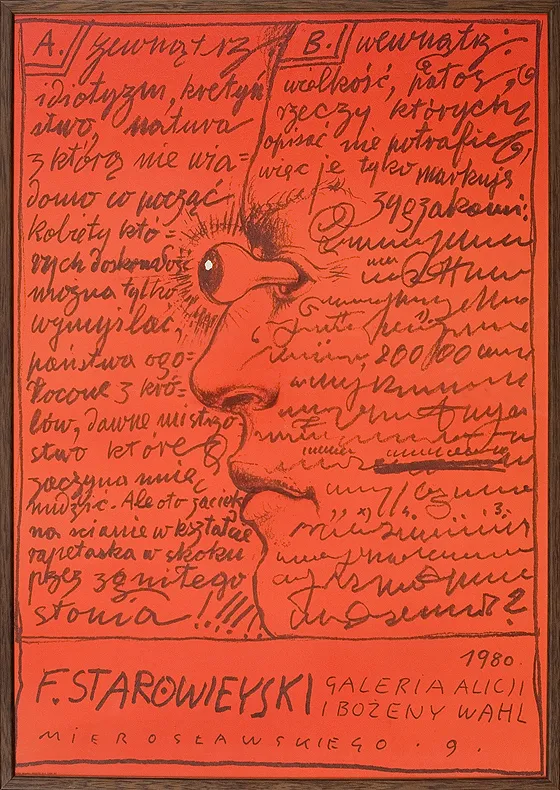 A. zewnątrz
idiotyzm, kretyń
stwo, natura
z którą nie wia=
domo co począć
kobiety któ=
rych doskonałość
można tylko
wymyślać,
państwa ogo=
łocone z kró=
lów, dawne mistrzo
stwo które
zaczyna mnie
nudzić. Ale oto zaciek
na ścianie w kształcie
rapetaska w skoku
przez zgniłego
słonia !!!!!
B. wewnątrz:
wielkość, patos,
rzeczy których
opisać nie potrafię,
więc je tylko markuję
zygzakami:
200 100
1980.
F. STAROWIEYSKI
GALERIA ALICJI
I BOŻENY WAHL
MIEROSŁAWSKIEGO . 9 .